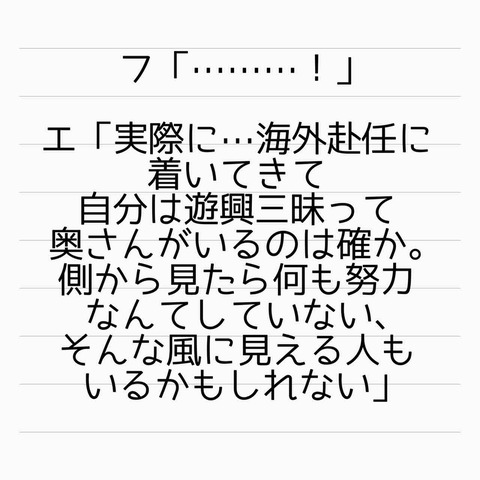 フ「………！」
エ「実際に…海外赴任に
着いてきて
自分は遊興三昧って
奥さんがいるのは確か。
側から見たら何も努力
なんてしていない、
そんな風に見える人も
いるかもしれない」